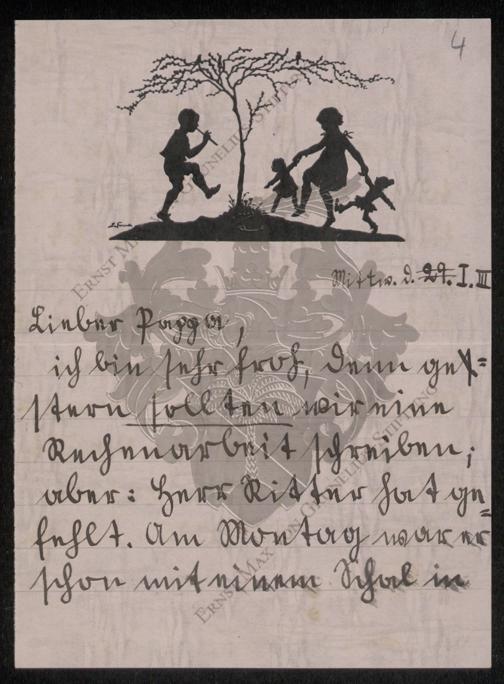 4
Mittw. d. 29. I. III
Lieber Pappa,
ich bin sehr froh, denn ge=
stern sollten wir eine
Rechenarbeit schreiben;
aber: Herr Ritter hat ge=
fehlt. Am Montag war er
schon mit einem Schal in
ERNST MAX VON GRUNELIUS STIFTUNG
ERNST MAX VON GRUNELIUS STIFTUNG